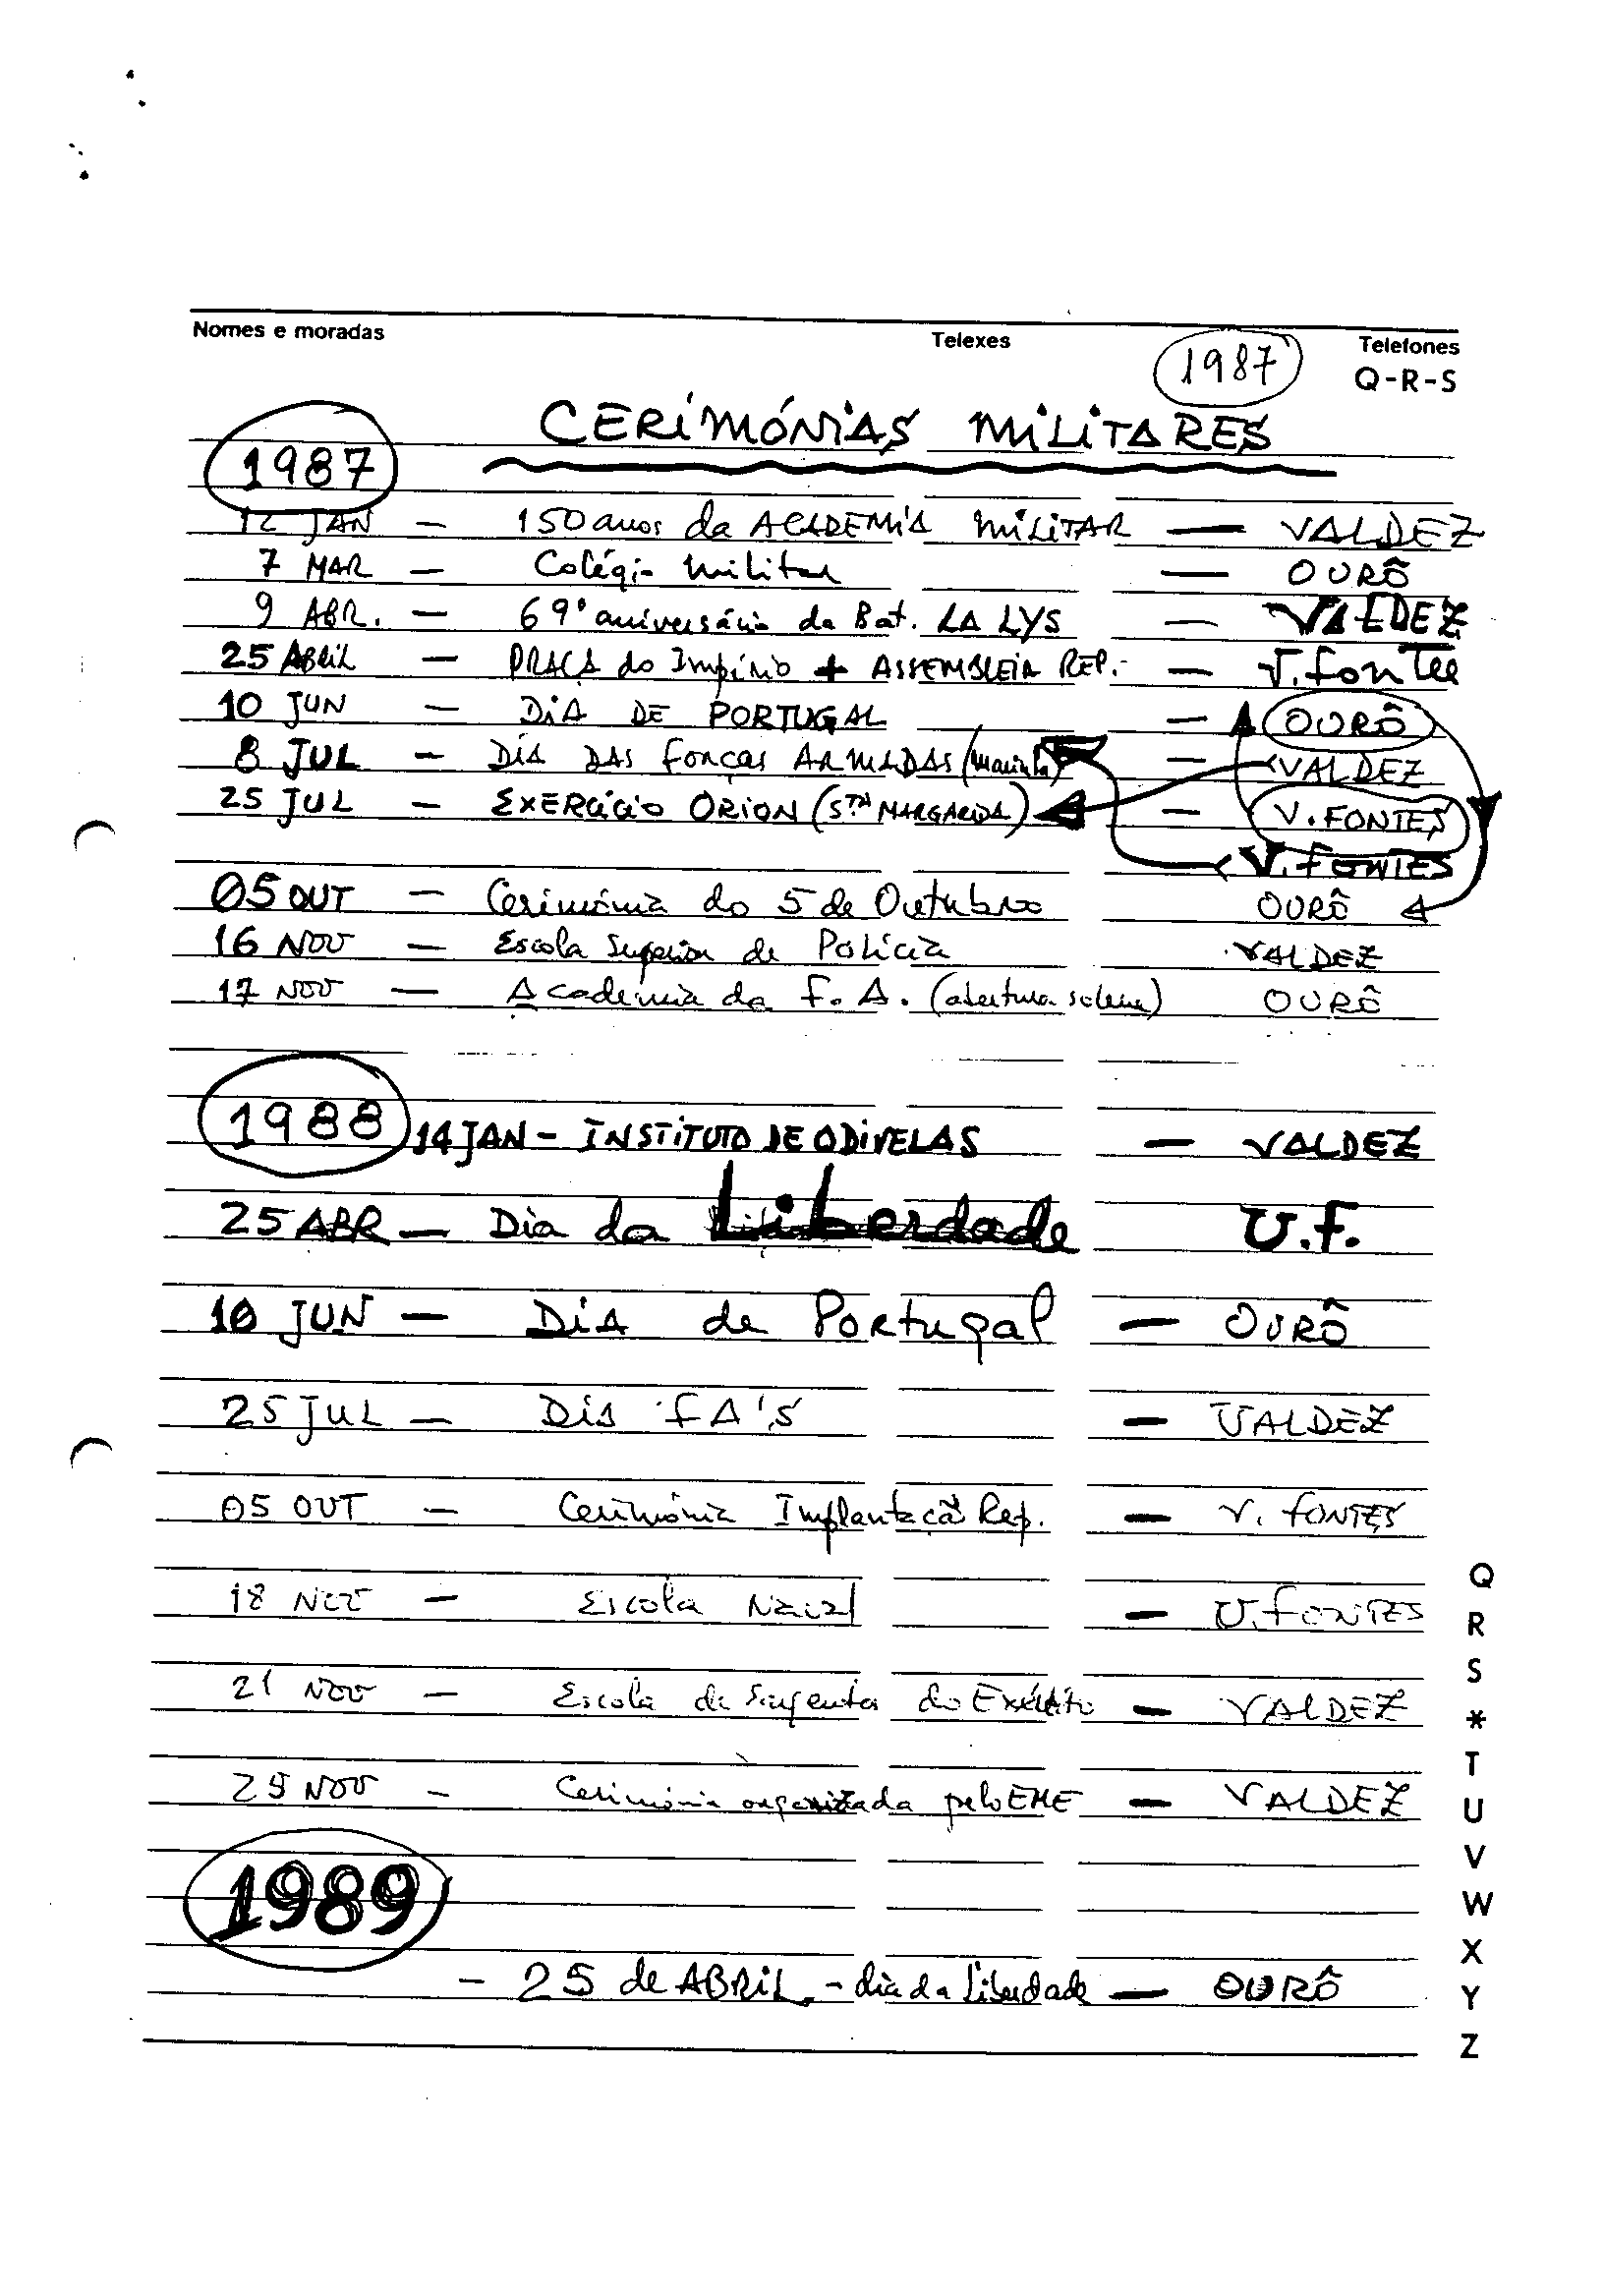 Nomes e moradas Telexes Telefones
1987 Q-R-S
CERIMÓNIAS MILITARES
1987
12 JAN - 150 anos da ACADEMIA MILITAR - VALDEZ
7 MAR - Colégio Militar - OURÔ
9 ABR. - 69º aniversário da Bat. LA LYS - VALDEZ
25 ABRIL - PRAÇA do Império + ASSEMBLEIA REP. - V. Fontes
10 JUN - DIA DE PORTUGAL - OURÔ
8 JUL - DIA DAS Forças ARMADAS (Marinha) - VALDEZ
25 JUL - EXERCÍCIO ORION (STA MARGARIDA) - V. FONTES
V. FONTES
05 OUT - Cerimónia do 5 de Outubro OURÔ
16 NOV - Escola Superior de Polícia VALDEZ
17 NOV - Academia da F.A. (abertura solene) OURÔ
1988 14 JAN - INSTITUTO DE ODIVELAS - VALDEZ
25 ABR - Dia da Liberdade V.F.
10 JUN - DIA de Portugal - OURÔ
25 JUL - DIA FA'S - VALDEZ
05 OUT - Cerimónia Implantação Rep. - V. FONTES
18 NOV - Escola Naval - V. FONTES
21 NOV - Escola de Sargentos do Exército - VALDEZ
25 NOV - Cerimónia organizada pelo EME - VALDEZ
1989
- 25 de ABRIL - dia da Liberdade - OURÔ
Q
R
S
*
T
U
V
W
X
Y
Z